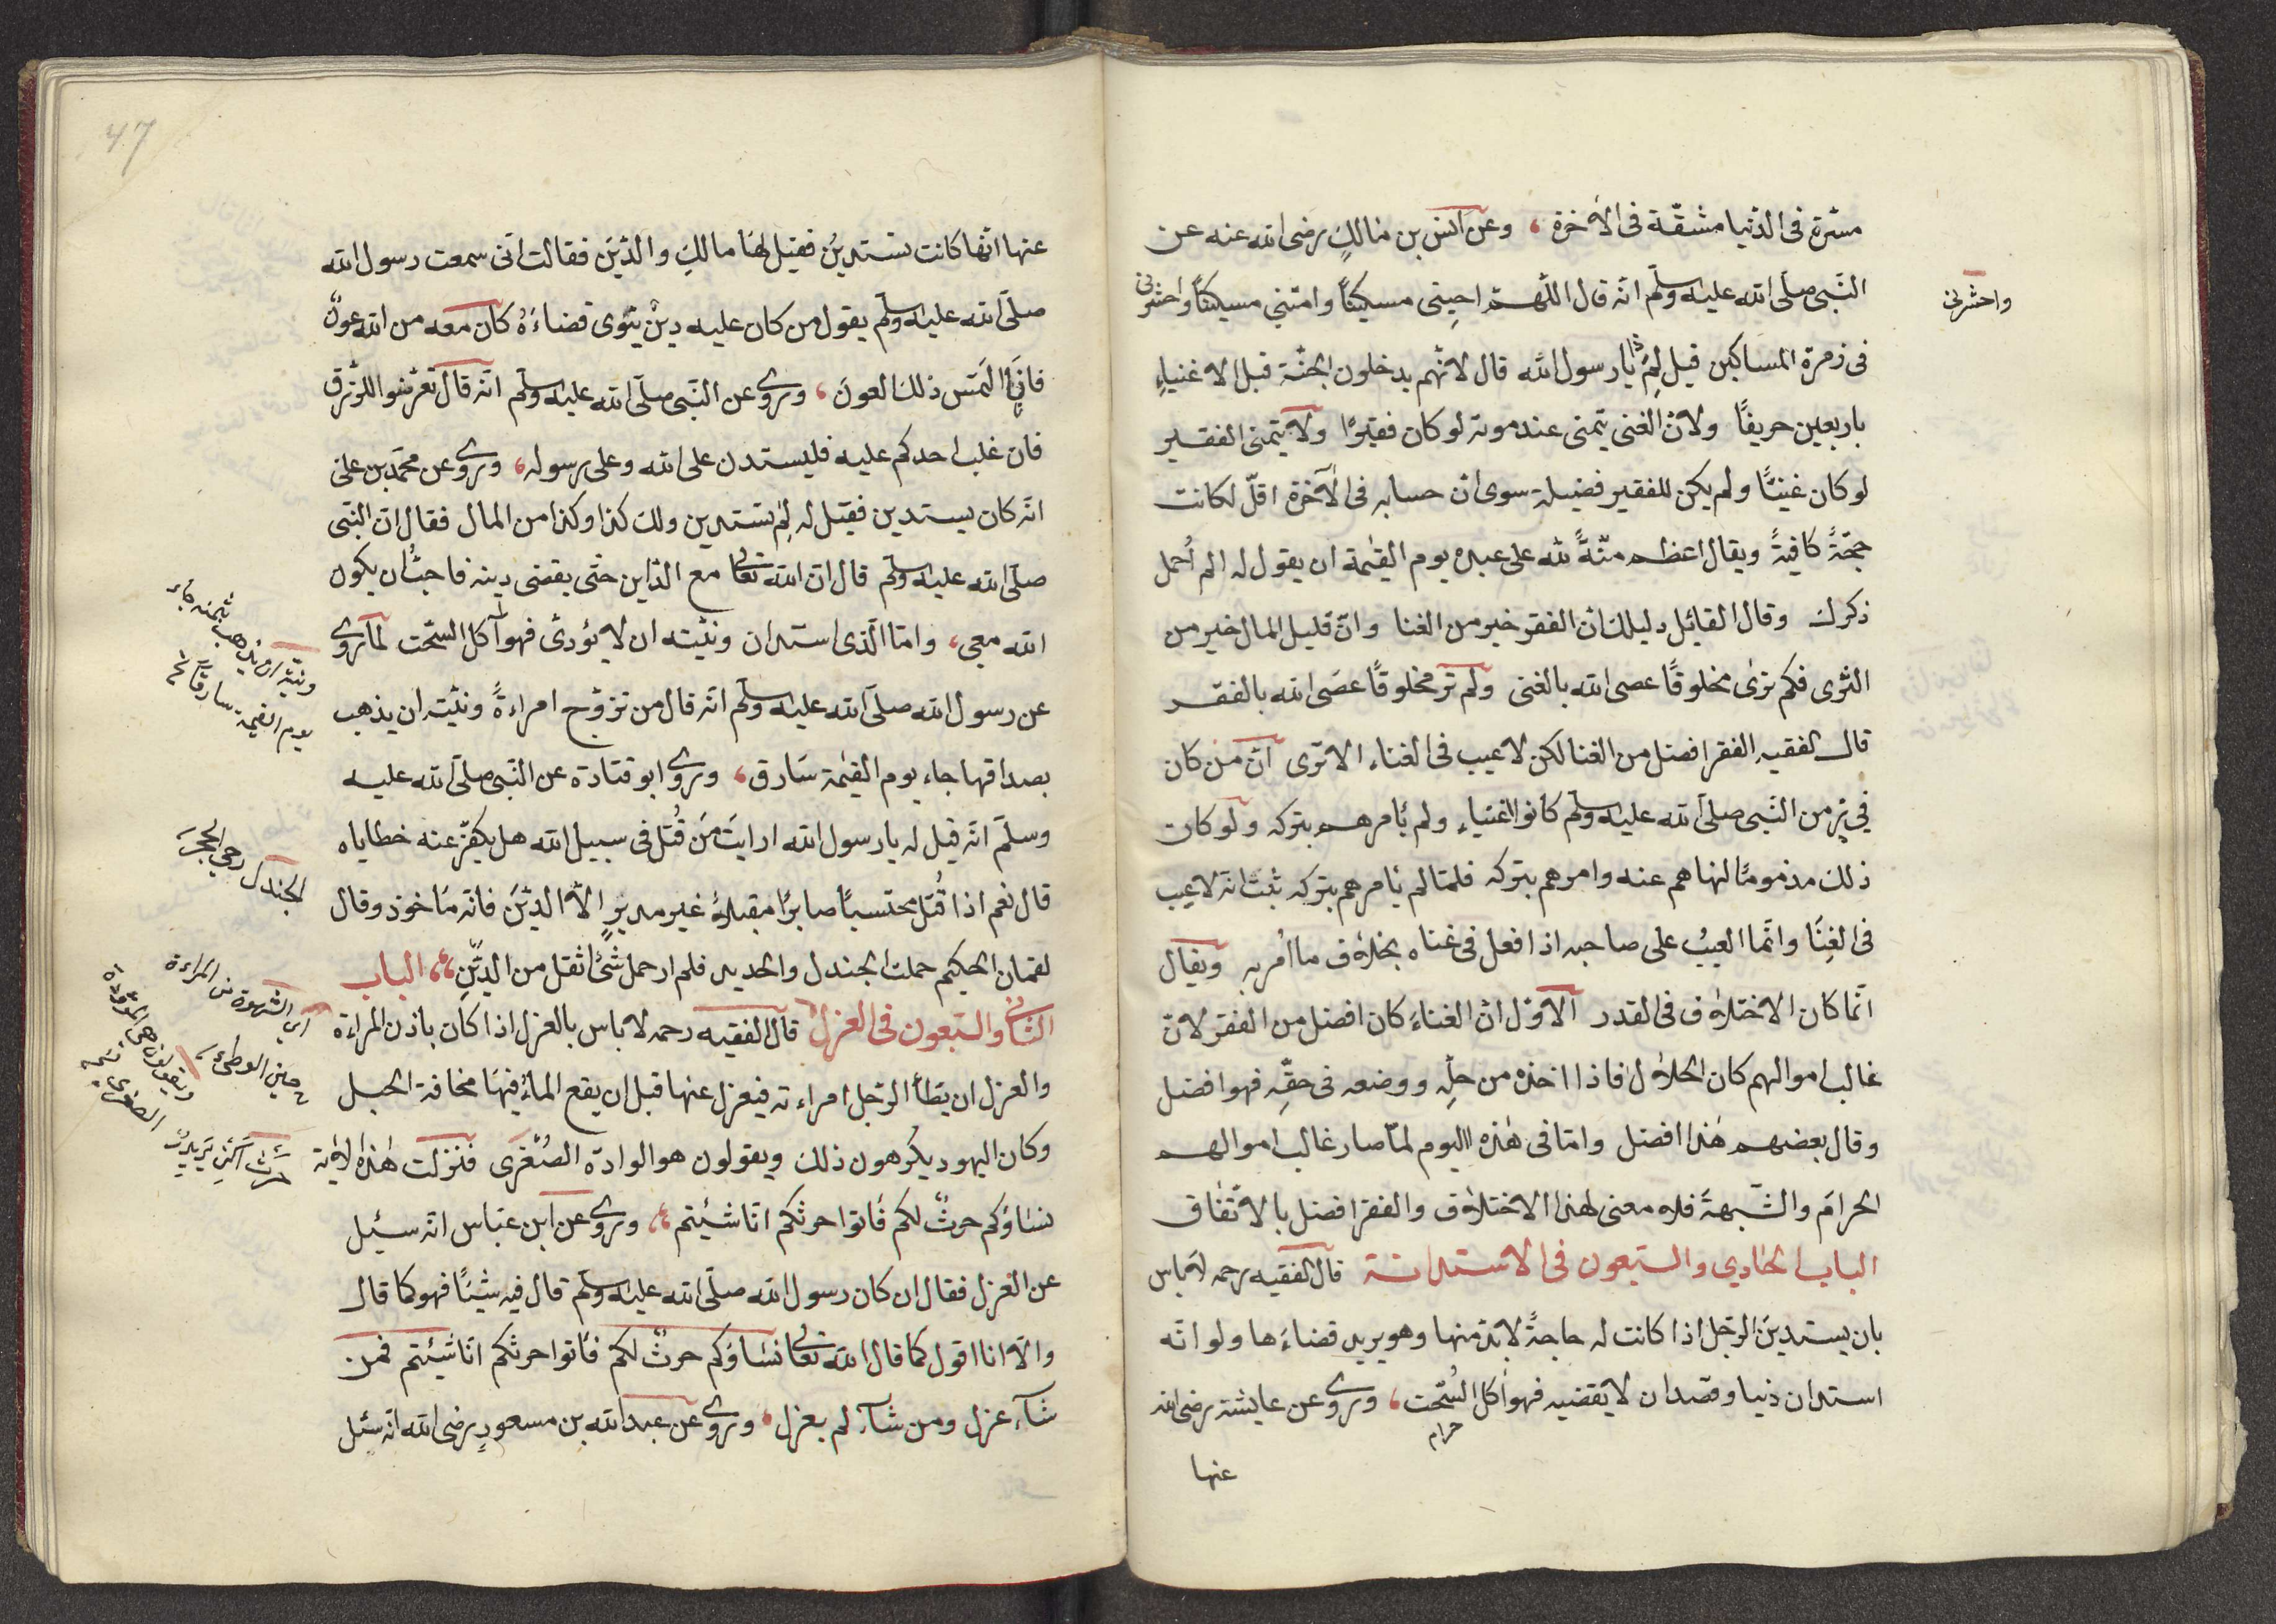 مسّرة فى الدّنيا مشقّة فى الآخرة ، وعن انس بن مالكٍ رضى الله عنه عن
النّبى صلّى الله عليه وسلّم انّه قال اللّهمّ احينى مسكينًا وامتنى مسكينًا واحشرنى
واحشرنى
فى زمرة المساكين قيل لِمَ يا رسول الله قال لانّهم يدخلون الجنّة قبل الاغنياء
باربعين خريفًا ولانّ الغنى يتمنى عند موته لو كان فقيرًا ولا يتمنى الفقير
لو كان غنيًّا ولم يكن للفقير فضيلة سوى انّ حسابه فى الآخرة اقلّ لكانت
حجّةً كافيةً ويقال اعظم منّةً لله على عبده يوم القيٰمة ان يقول له الم اُحمل
ذكرك وقال القائل دليلك انّ الفقر خير من الغنا وانّ قليل المال خير من
الثرى فكم ترٰى مخلوقًا عصى الله بالغنى ولم تر مخلوقًا عصَى الله بالفقر
قال الفقيه الفقر افضل من الغنا لكن لا عيب فى الغناء الا ترٰى انّ من كان
فى زمن النّبى صلّى الله عليه وسلّم كانوا اغنياء ولم يأمرهم بتركه ولو كان
ذلك مذمومًا لنهاهم عنه وامرهم بتركه فلمّا لم يأمرهم بتركه ثبت انّه لا عيب
فى الغِنَا وانّما العيبُ على صاحبه اذا فعل فى غناه بخلاف ما اُمر به ويقال
انّما كان الاختلاف فى القدر الاوّل انّ الغناءَ كان افضل من الفقر لانّ
غالب اموالهم كان الحلال فاذا اخذه من حلّهِ ووضعه فى حقّهِ فهو افضل
وقال بعضهم هٰذا افضل وامّا فى هٰذه اليوم لمّا صار غالب اموالهم
الحرامَ والشّبهةَ فلا معنى لهٰذا الاختلاف والفقر افضل بالاتّفاق
الباب الحادى والسّبعون فى الاستدانة قال الفقيه رحمه لا بأس
بان يستدينَ الرّجل اذا كانت له حاجةً لا بدّ منها وهو يريد قضاءَها ولو انّه
استدان دَينا وقصد ان لا يقضيه فهو آكل السُّحت ، وروى عن عايشة رضى الله
حرام
عنها
47
عنها انّها كانت تستدينُ فقيل لهَا مالكِ والدّينَ فقالت انّى سمعت رسول الله
صلّى الله عليه وسلّم يقول من كان عليه دينٌ ينْوى قضاءَهُ كان معه من الله عونٌ
فانّى التمَس ذلك العونَ ، وروى عن النّبى صلّى الله عليه وسلّم انّه قال تعرّضوا للرّزق
فان غلب احدكم عليه فليستدن على الله وعلى رسوله ، وروى عن محمّد بن على
انّه كان يستدين فقيل له لِمَ تستدين ولك كذا وكذا من المال فقال انّ النّبى
صلّى الله عليه وسلّم قال انّ الله تعالى مع الدّاين حتّى يقضى دينه فاحبُّ ان يكون
الله معى ، وامّا الّذى استدان ونيّته ان لا يؤدى فهو آكل السّحت لما روى
عن رسول الله صلّى الله عليه وسلّم انّه قال من تزوّج امراءةً ونيّته ان يذهب
بصداقها جاء يوم القيٰمة سَارق ، وروى ابو قتادة عن النّبى صلّى الله عليه
وسلّم انّه قيل له يا رسول الله ارايت مَن قُتل فى سبيل الله هل يكفّر عنه خطاياه
الجندل رحى الحجر
قال نعم اذا قُتل محتسبًا صابرًا مقبلاً غير مدبرٍ الّا الدّيْنَ فانّه مَأخوذ وقال
لقمان الحكيم حملت الجندل والحديد فلم ار حمل شئ اثقل من الدّيَنِ ، الباب
الثانى والسّبعون فى العزل قال الفقيه رحمه لا بأس بالعزل اذا كان باذن المراءة
اى الشهوة من المراءة
حين الوطئ
والعزل ان يَطأ الرّجل امراءته فيعزل عنها قبل ان يقع المَاءُ فيهَا مخافة الحبل
وكان اليهود يكرهون ذلك ويقولون هو الوادة الصُغرى فنزلت هٰذه الآية
نسَاؤكم حرثٌ لكم فَأتوا حرثكم انّا شئتم ، وروى عن ابن عبّاس انّه سئِل
عن العزل فقال ان كان رسول الله صلّى الله عليه وسلّم قال فيه شيئًا فهو كما قال
والّا انا اقول كما قال الله تعالى نسَاؤكم حرثٌ لكم فَأتوا حرثكم انّا شئتم فمن
شآء عزل ومن شآء لم يعزل ، وروى عن عبد الله بن مسعودٍ رضى الله انّه سئل